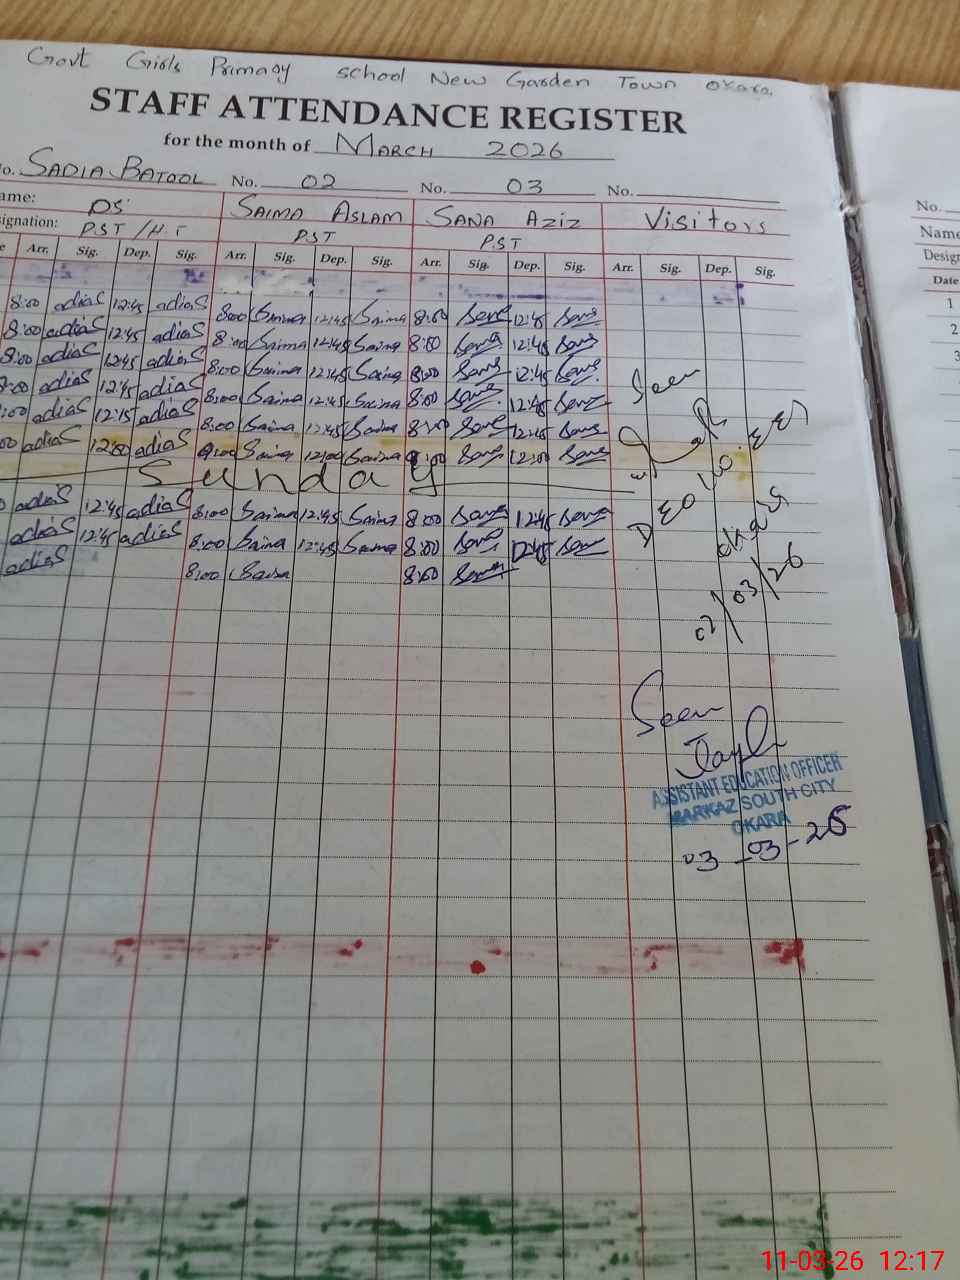 Govt Girls Primary school New Garden Town Okara.
STAFF ATTENDANCE REGISTER
for the month of MARCH 2026
o. SADIA BATOOL No. 02 No. 03 No.
ame: DS SAIMA ASLAM SANA AZIZ Visitors
signation: PST / H.T PST PST
e Arr. Sig. Dep. Sig. Arr. Sig. Dep. Sig. Arr. Sig. Dep. Sig. Arr. Sig. Dep. Sig.
8:00 adiaS 12:45 adiaS 8:00 Saima 12:45 Saima 8:00 Sana 12:45 Sana
8:00 adiaS 12:45 adiaS 8:00 Saima 12:45 Saima 8:00 Sana 12:45 Sana
8:00 adiaS 12:45 adiaS 8:00 Saima 12:45 Saima 8:00 Sana 12:45 Sana
8:00 adiaS 12:45 adiaS 8:00 Saima 12:45 Saima 8:00 Sana 12:45 Sana
:00 adiaS 12:15 adiaS 8:00 Saima 12:45 Saima 8:00 Sana 12:45 Sana
00 adiaS 12:00 adiaS :00 Saima 12:00 Saima :00 Sana 12:00 Sana
Sunday
0 adiaS 12:45 adiaS 8:00 Saima 12:45 Saima 8:00 Sana 12:45 Sana
adiaS 12:45 adiaS 8:00 Saima 12:45 Saima 8:00 Sana 12:45 Sana
adiaS 8:00 Saima 8:00 Sana
Seen
DEO (W.EE)
Okara
02/03/26
Seen
ASSISTANT EDUCATION OFFICER
MARKAZ SOUTH CITY
OKARA
03-03-26
No.
Name
Design
Date
1
2
3
11-03-26 12:17